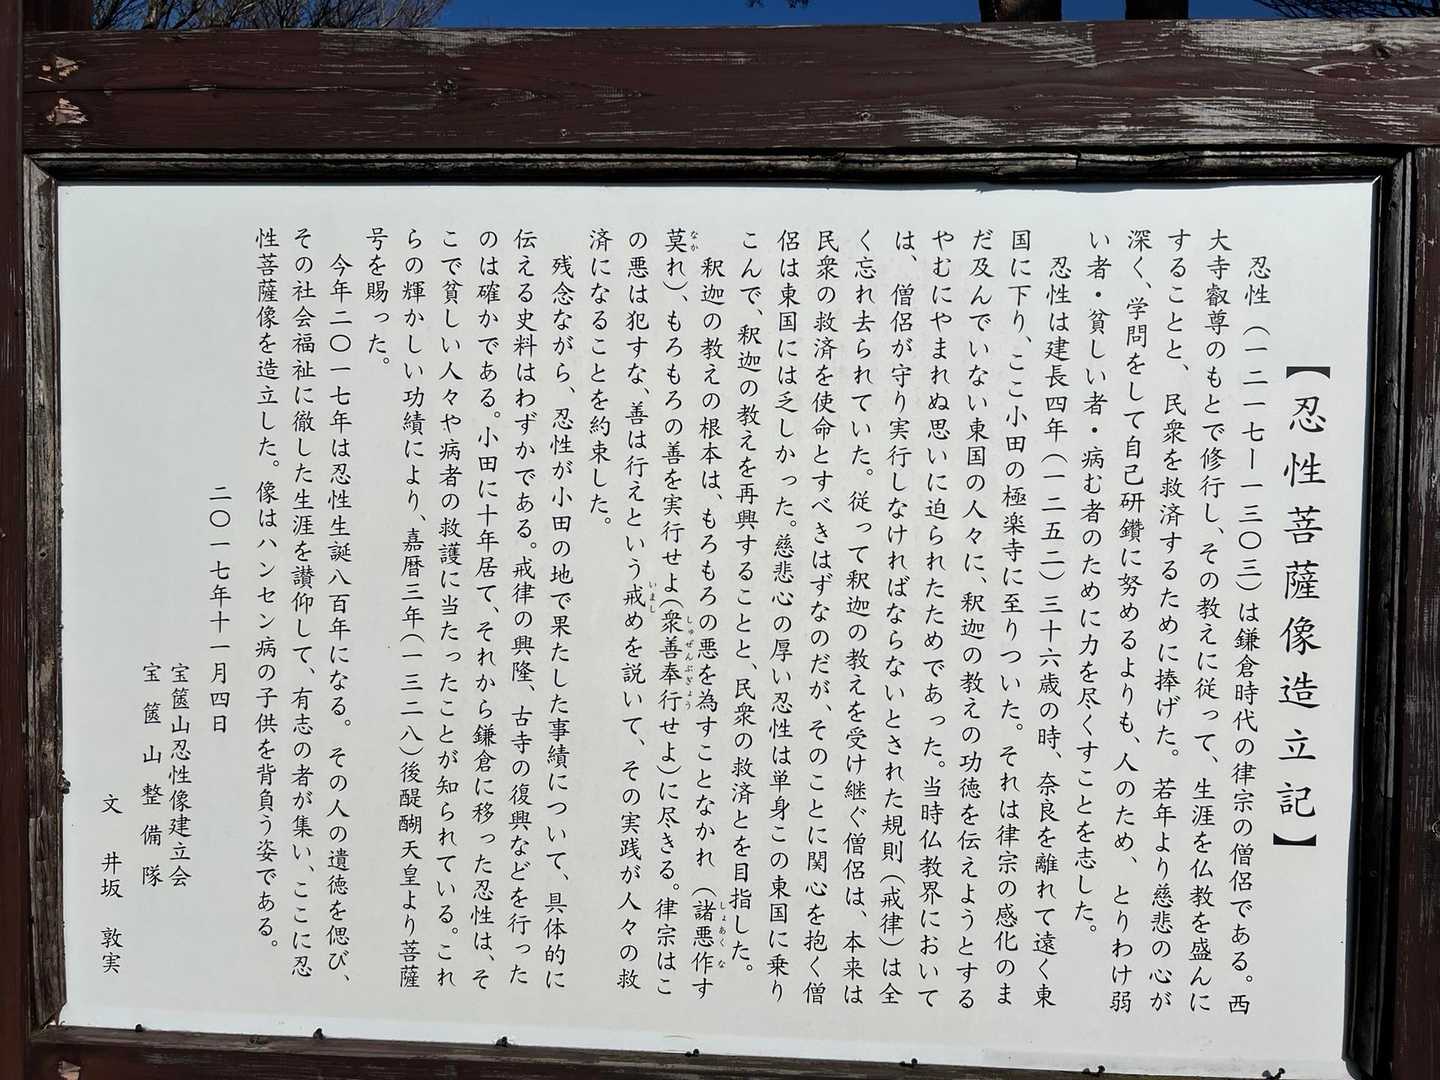 【忍性菩薩像造立記】
忍性（一二一七ー一三〇三）は鎌倉時代の律宗の僧侶である。西
大寺叡尊のもとで修行し、その教えに従って、生涯を仏教を盛んに
することと、民衆を救済するために捧げた。若年より慈悲の心が
深く、学問をして自己研鑽に努めるよりも、人のため、とりわけ弱
い者・貧しい者・病む者のために力を尽くすことを志した。
忍性は建長四年（一二五二）三十六歳の時、奈良を離れて遠く東
国に下り、ここ小田の極楽寺に至りついた。それは律宗の感化のま
だ及んでいない東国の人々に、釈迦の教えの功徳を伝えようとする
やむにやまれぬ思いに迫られたためであった。当時仏教界において
は、僧侶が守り実行しなければならないとされた規則（戒律）は全
く忘れ去られていた。従って釈迦の教えを受け継ぐ僧侶は、本来は
民衆の救済を使命とすべきはずなのだが、そのことに関心を抱く僧
侶は東国には乏しかった。慈悲心の厚い忍性は単身この東国に乗り
こんで、釈迦の教えを再興することと、民衆の救済とを目指した。
釈迦の教えの根本は、もろもろの悪を為すことなかれ（諸悪作す
莫れ）、もろもろの善を実行せよ（衆善奉行せよ）に尽きる。律宗はこ
の悪は犯すな、善は行えという戒めを説いて、その実践が人々の救
済になることを約束した。
残念ながら、忍性が小田の地で果たした事績について、具体的に
伝える史料はわずかである。戒律の興隆、古寺の復興などを行った
のは確かである。小田に十年居て、それから鎌倉に移った忍性は、そ
こで貧しい人々や病者の救護に当たったことが知られている。これ
らの輝かしい功績により、嘉暦三年（一三二八）後醍醐天皇より菩薩
号を賜った。
今年二〇一七年は忍性生誕八百年になる。その人の遺徳を偲び、
その社会福祉に徹した生涯を讃仰して、有志の者が集い、ここに忍
性菩薩像を造立した。像はハンセン病の子供を背負う姿である。
二〇一七年十一月四日
宝篋山忍性像建立会
宝篋山整備隊
文 井坂 敦実